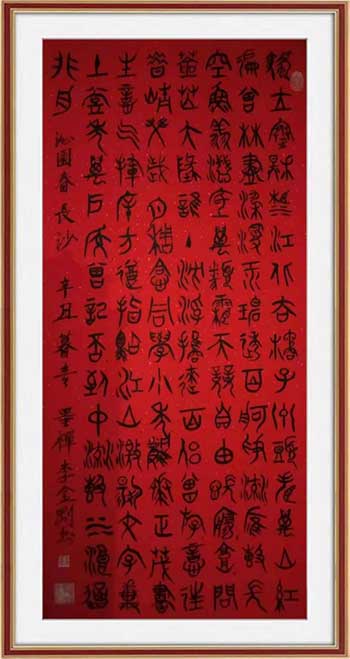 獨立寒秋湘江北去橘子洲頭看萬山紅
遍曾林盡染漫江碧透百舸爭流鷹擊長
空魚翔淺底萬類霜天競自由悵寥廓問
蒼茫大地誰主沈浮攜來百侶曾游憶往
昔崢嶸歲月稠恰同學少年風華正茂書
生意气揮斥方遒指點江山激揚文字糞
土當年萬戶侯曾記否到中流擊水浪遏
飛舟 沁園春長沙 辛丑暮春 墨禪李金剛書